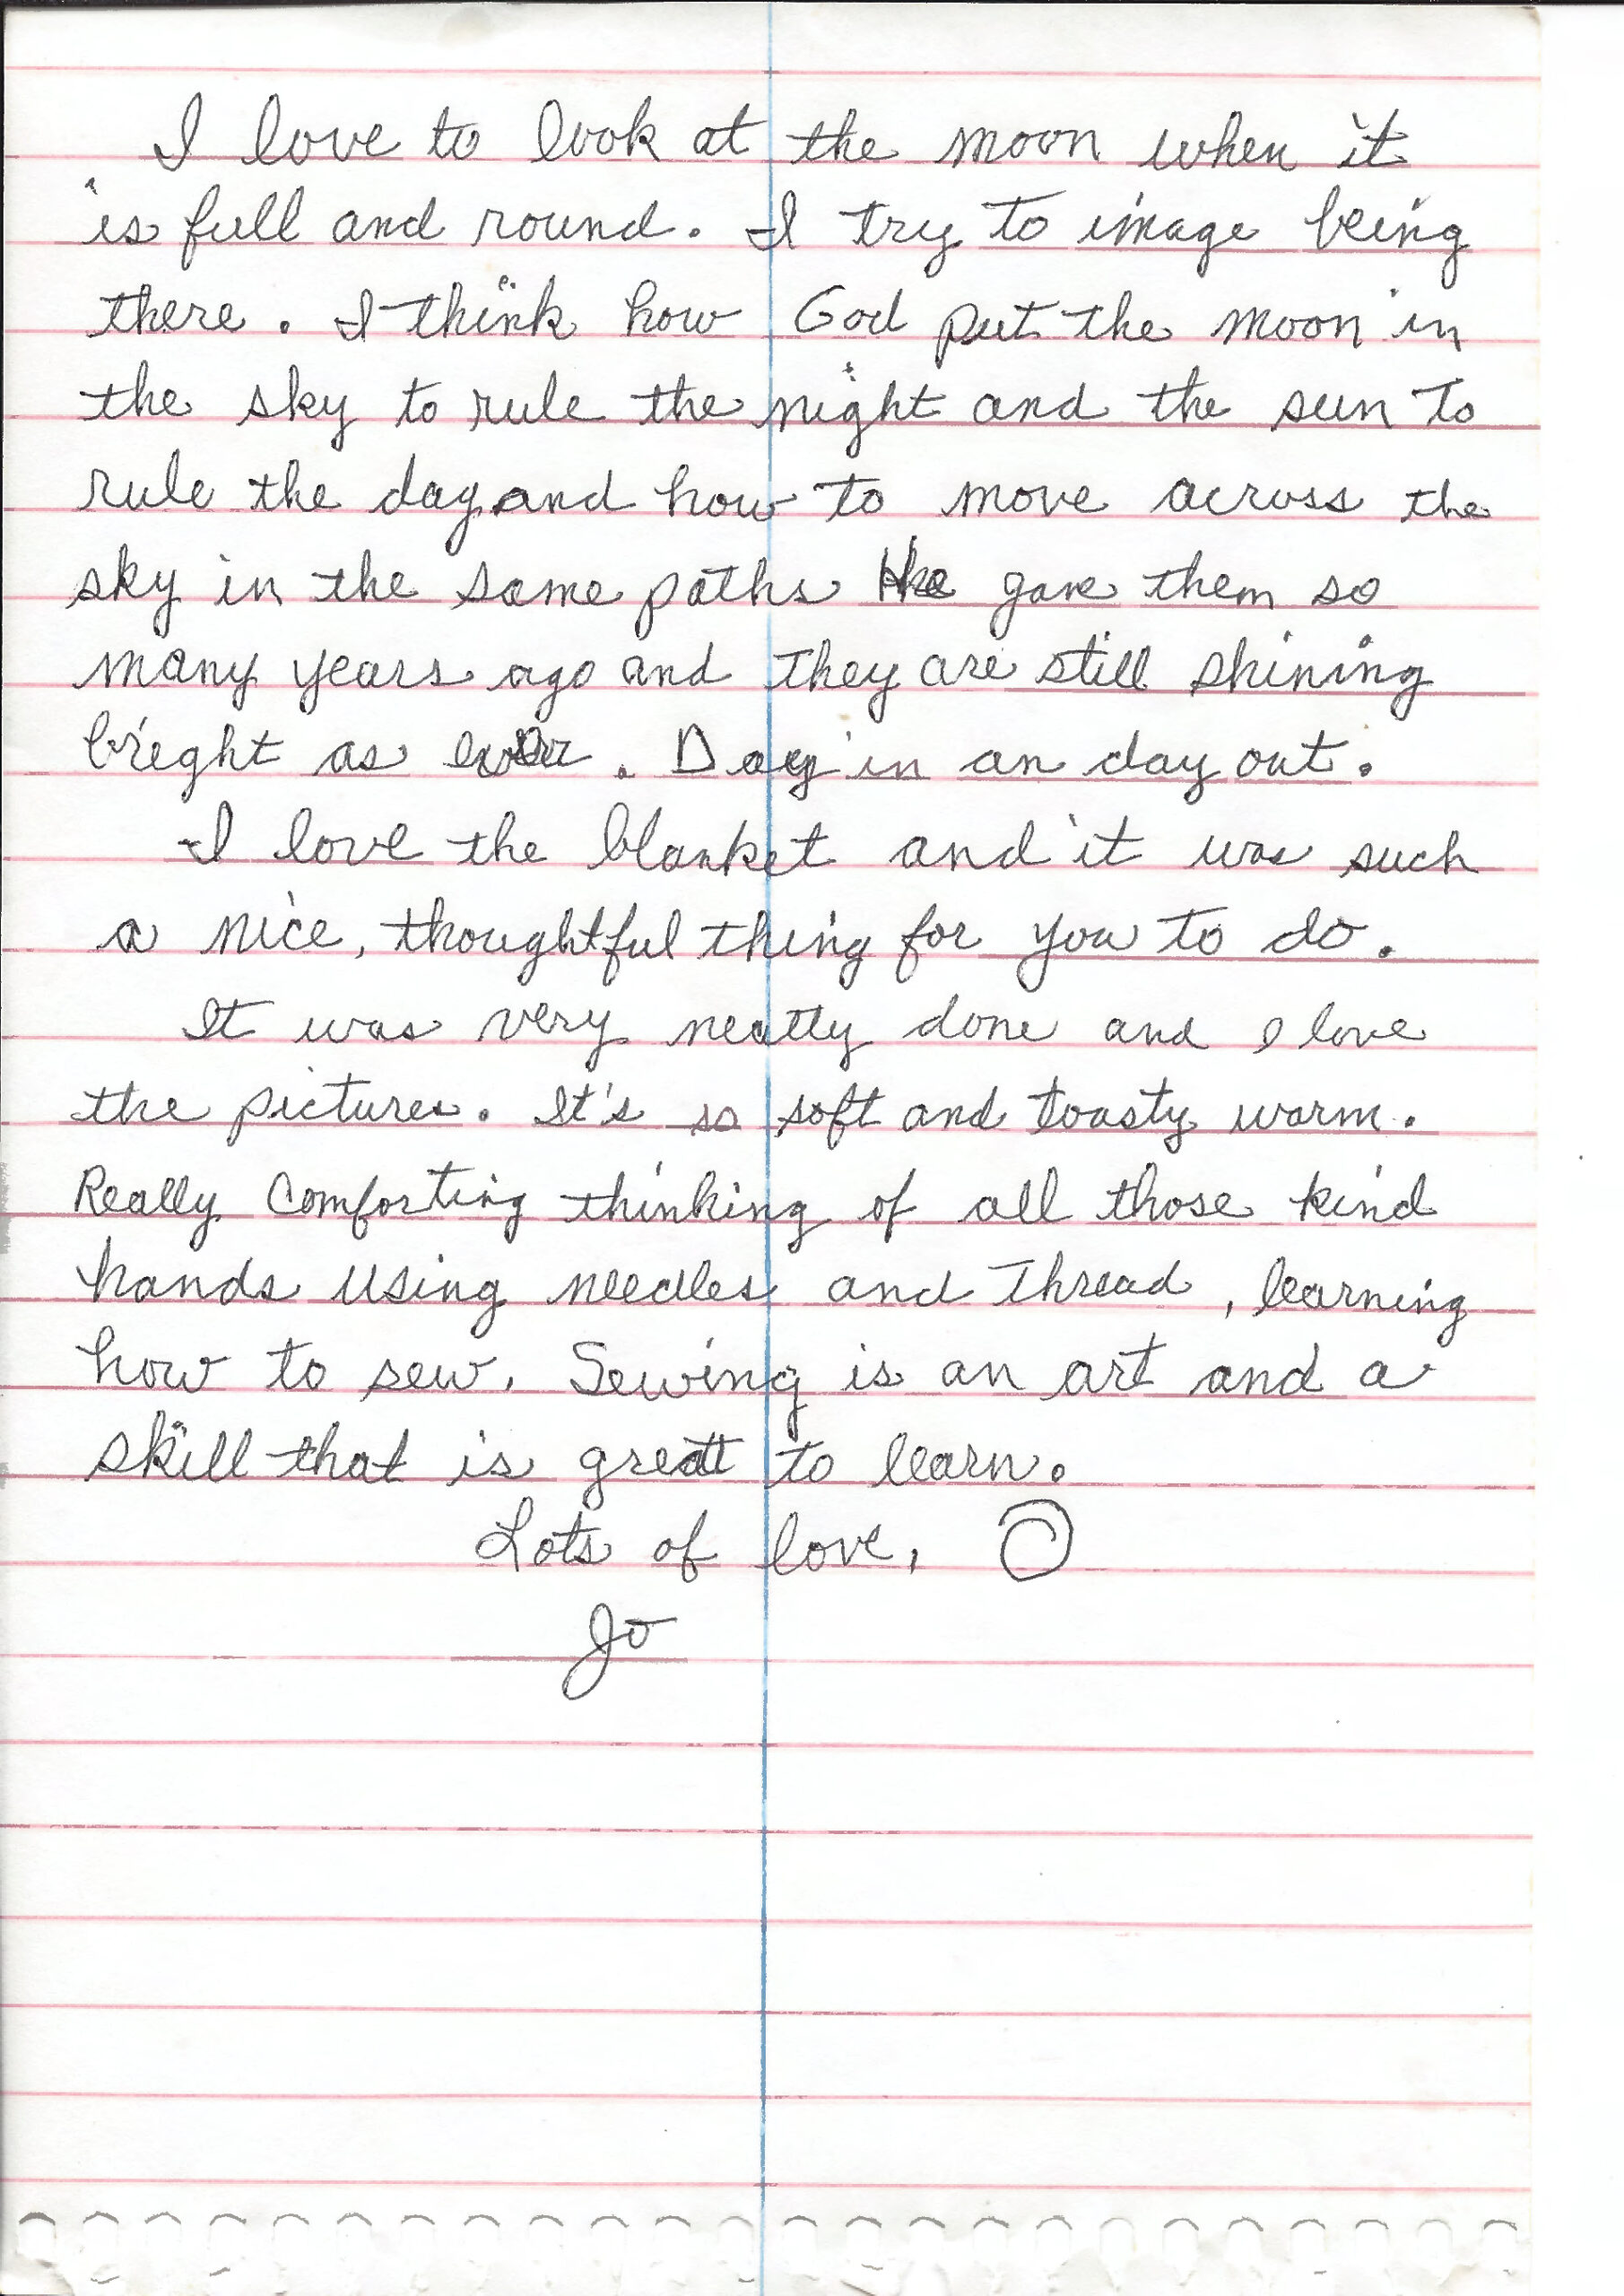 I love to look at the moon when it
is full and round. I try to image being
there. I think how God put the moon in
the sky to rule the night and the sun to
rule the day and how to move across the
sky in the same paths He gave them so
many years ago and they are still shining
bright as ever. Day in an day out.
I love the blanket and it was such
a nice, thoughtful thing for you to do.
It was very neatly done and I love
the pictures. It's so soft and toasty warm.
Really comforting thinking of all those kind
hands using needles and thread, learning
how to sew. Sewing is an art and a
skill that is great to learn.
Lots of love,
Jo